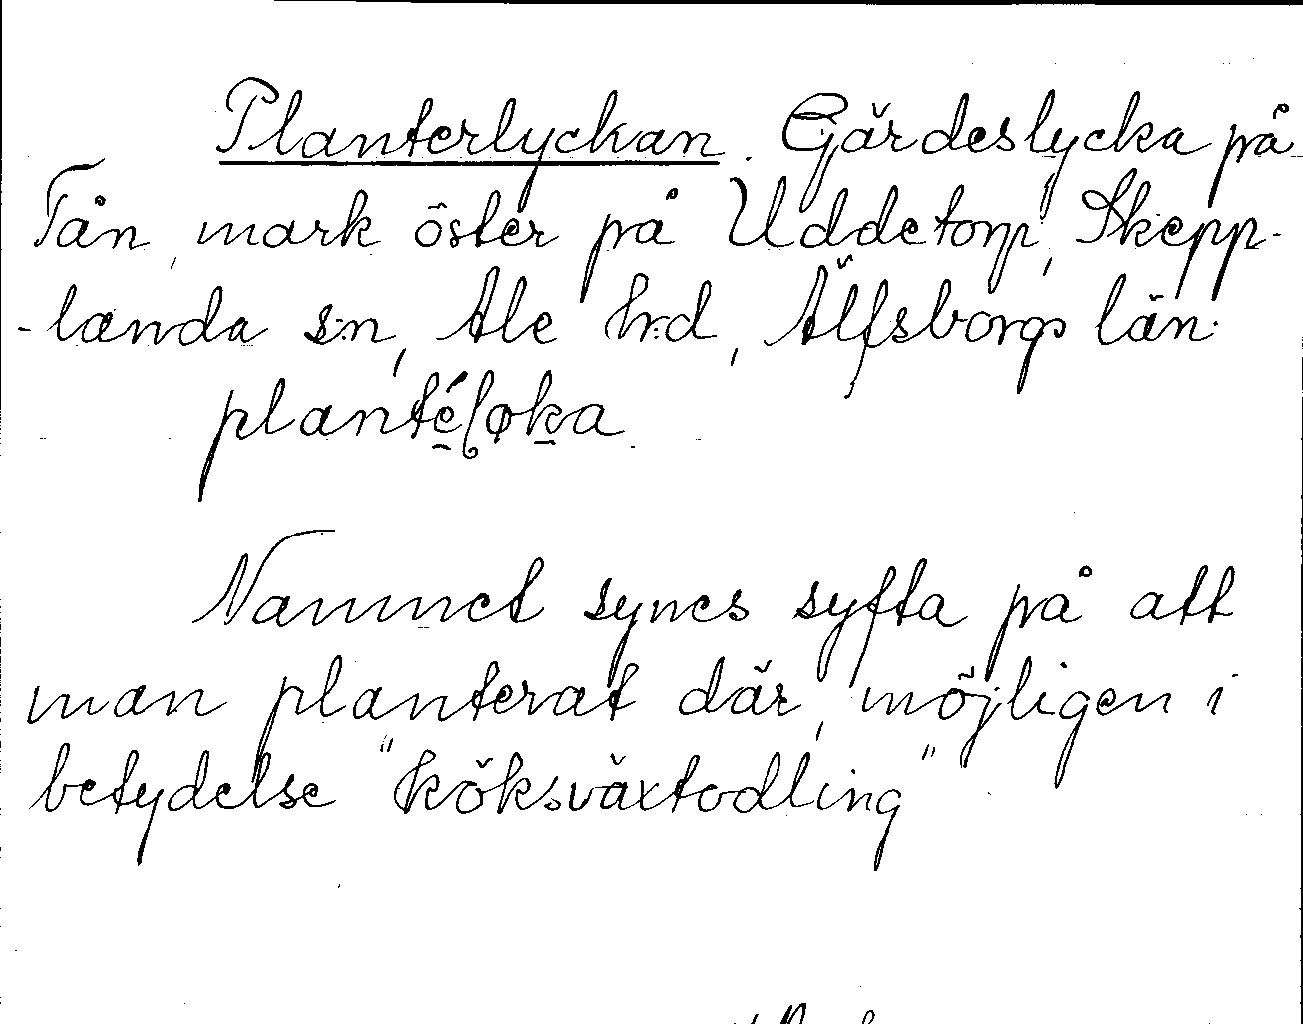 Planterlyckan. Gärdeslycka på
Tån, mark öster på Uddetorp, Skepp-
-landa s:n, Ale h:d, Älfsborgs län.

Namnet synes syfta på att
man planterat där, möjligen i
betydelse "köksväxtodling"